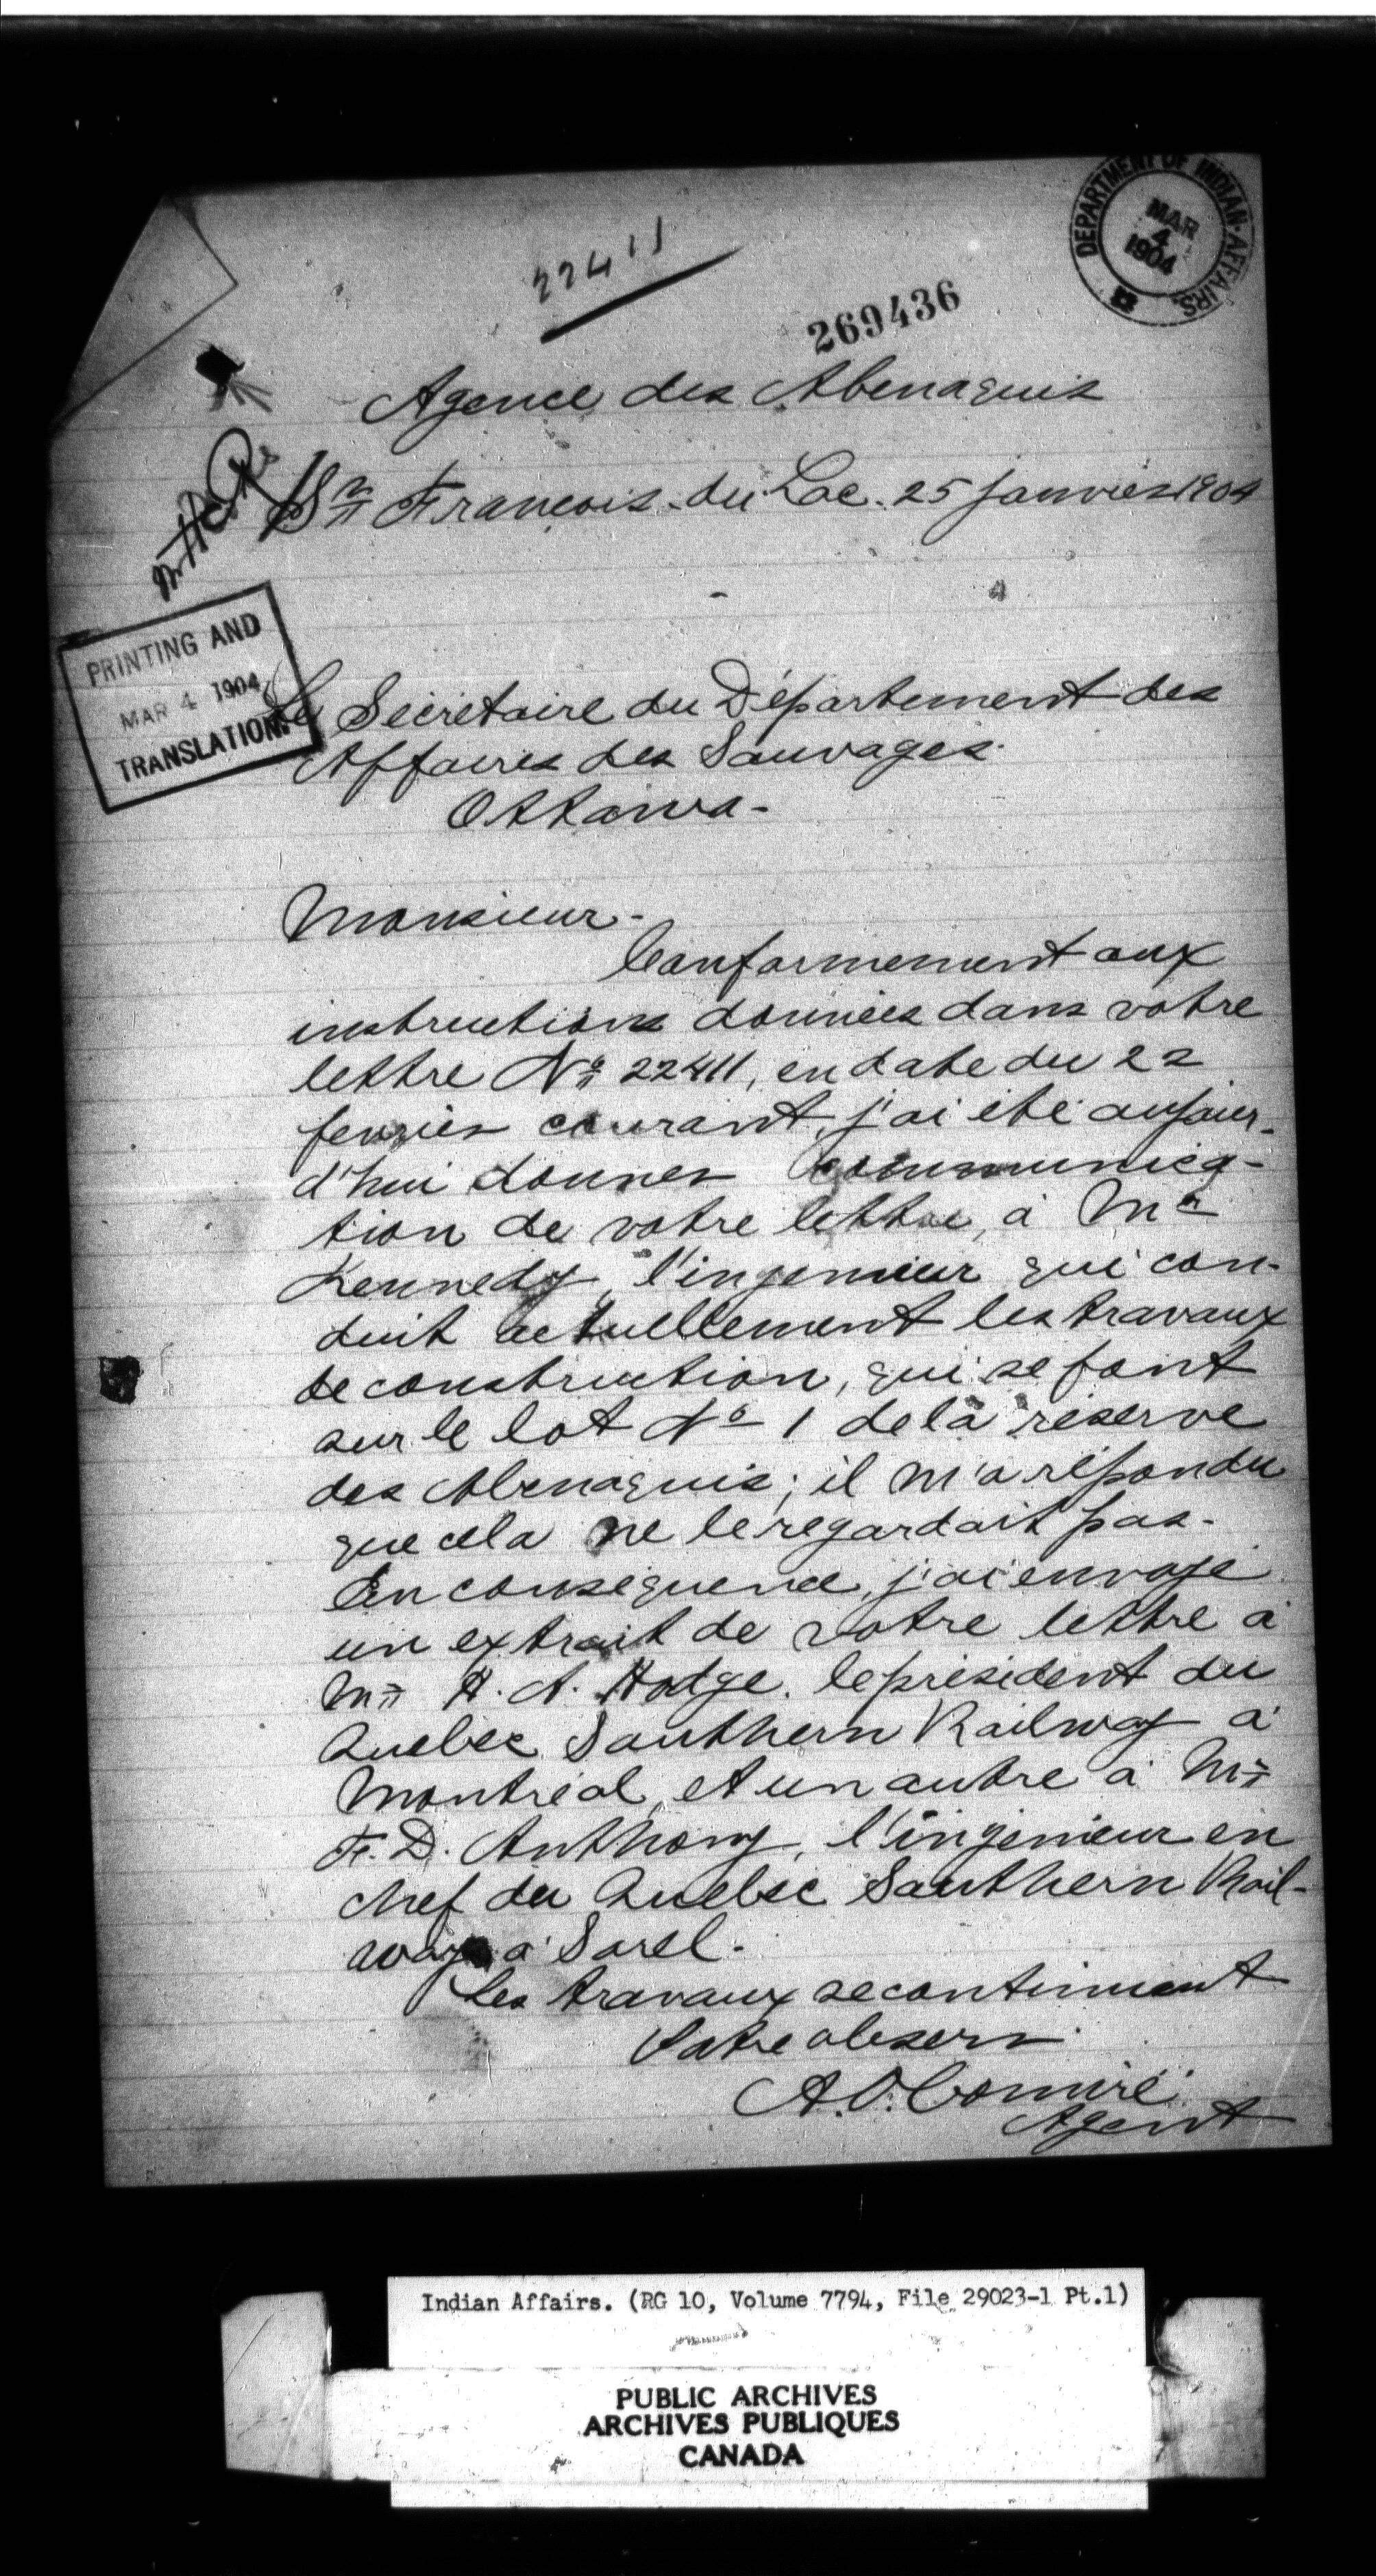 DEPARTMENT OF INDIAN AFFAIRS.
MAR
4
1904
22411
269436
Agence des Abenaquis
St François-du-Lac. 25 janvier 1904
PRINTING AND
MAR 4 1904
TRANSLATION.
Le Secrétaire du Département des
Affaires des Sauvages.
Ottawa-
Monsieur-
Conformement aux
instructions données dans votre
lettre No 22411, en date du 22
fevrier courant, j'ai été aujour-
d'hui donner communica-
tion de votre lettre, à Mr
Kennedy, l'ingenieur qui con-
duit actuellement les travaux
de construction, qui se font
sur le lot No 1 de la réserve
des Abenaquis; il m'a répondu
que cela ne le regardait pas.
En conséquence, j'ai envoyé
un extrait de votre lettre à
Mr H. A. Hodge. le président du
Quebec Southern Railway à
Montréal, et un autre à Mr
F. D. Anthony, l'ingénieur en
chef du Quebec Southern Rail-
way à Sorel.
Les travaux se continuent
Votre obserr
A. O. Comiré.
Agent
Indian Affairs. (RG 10, Volume 7794, File 29023-1 Pt.1)
PUBLIC ARCHIVES
ARCHIVES PUBLIQUES
CANADA